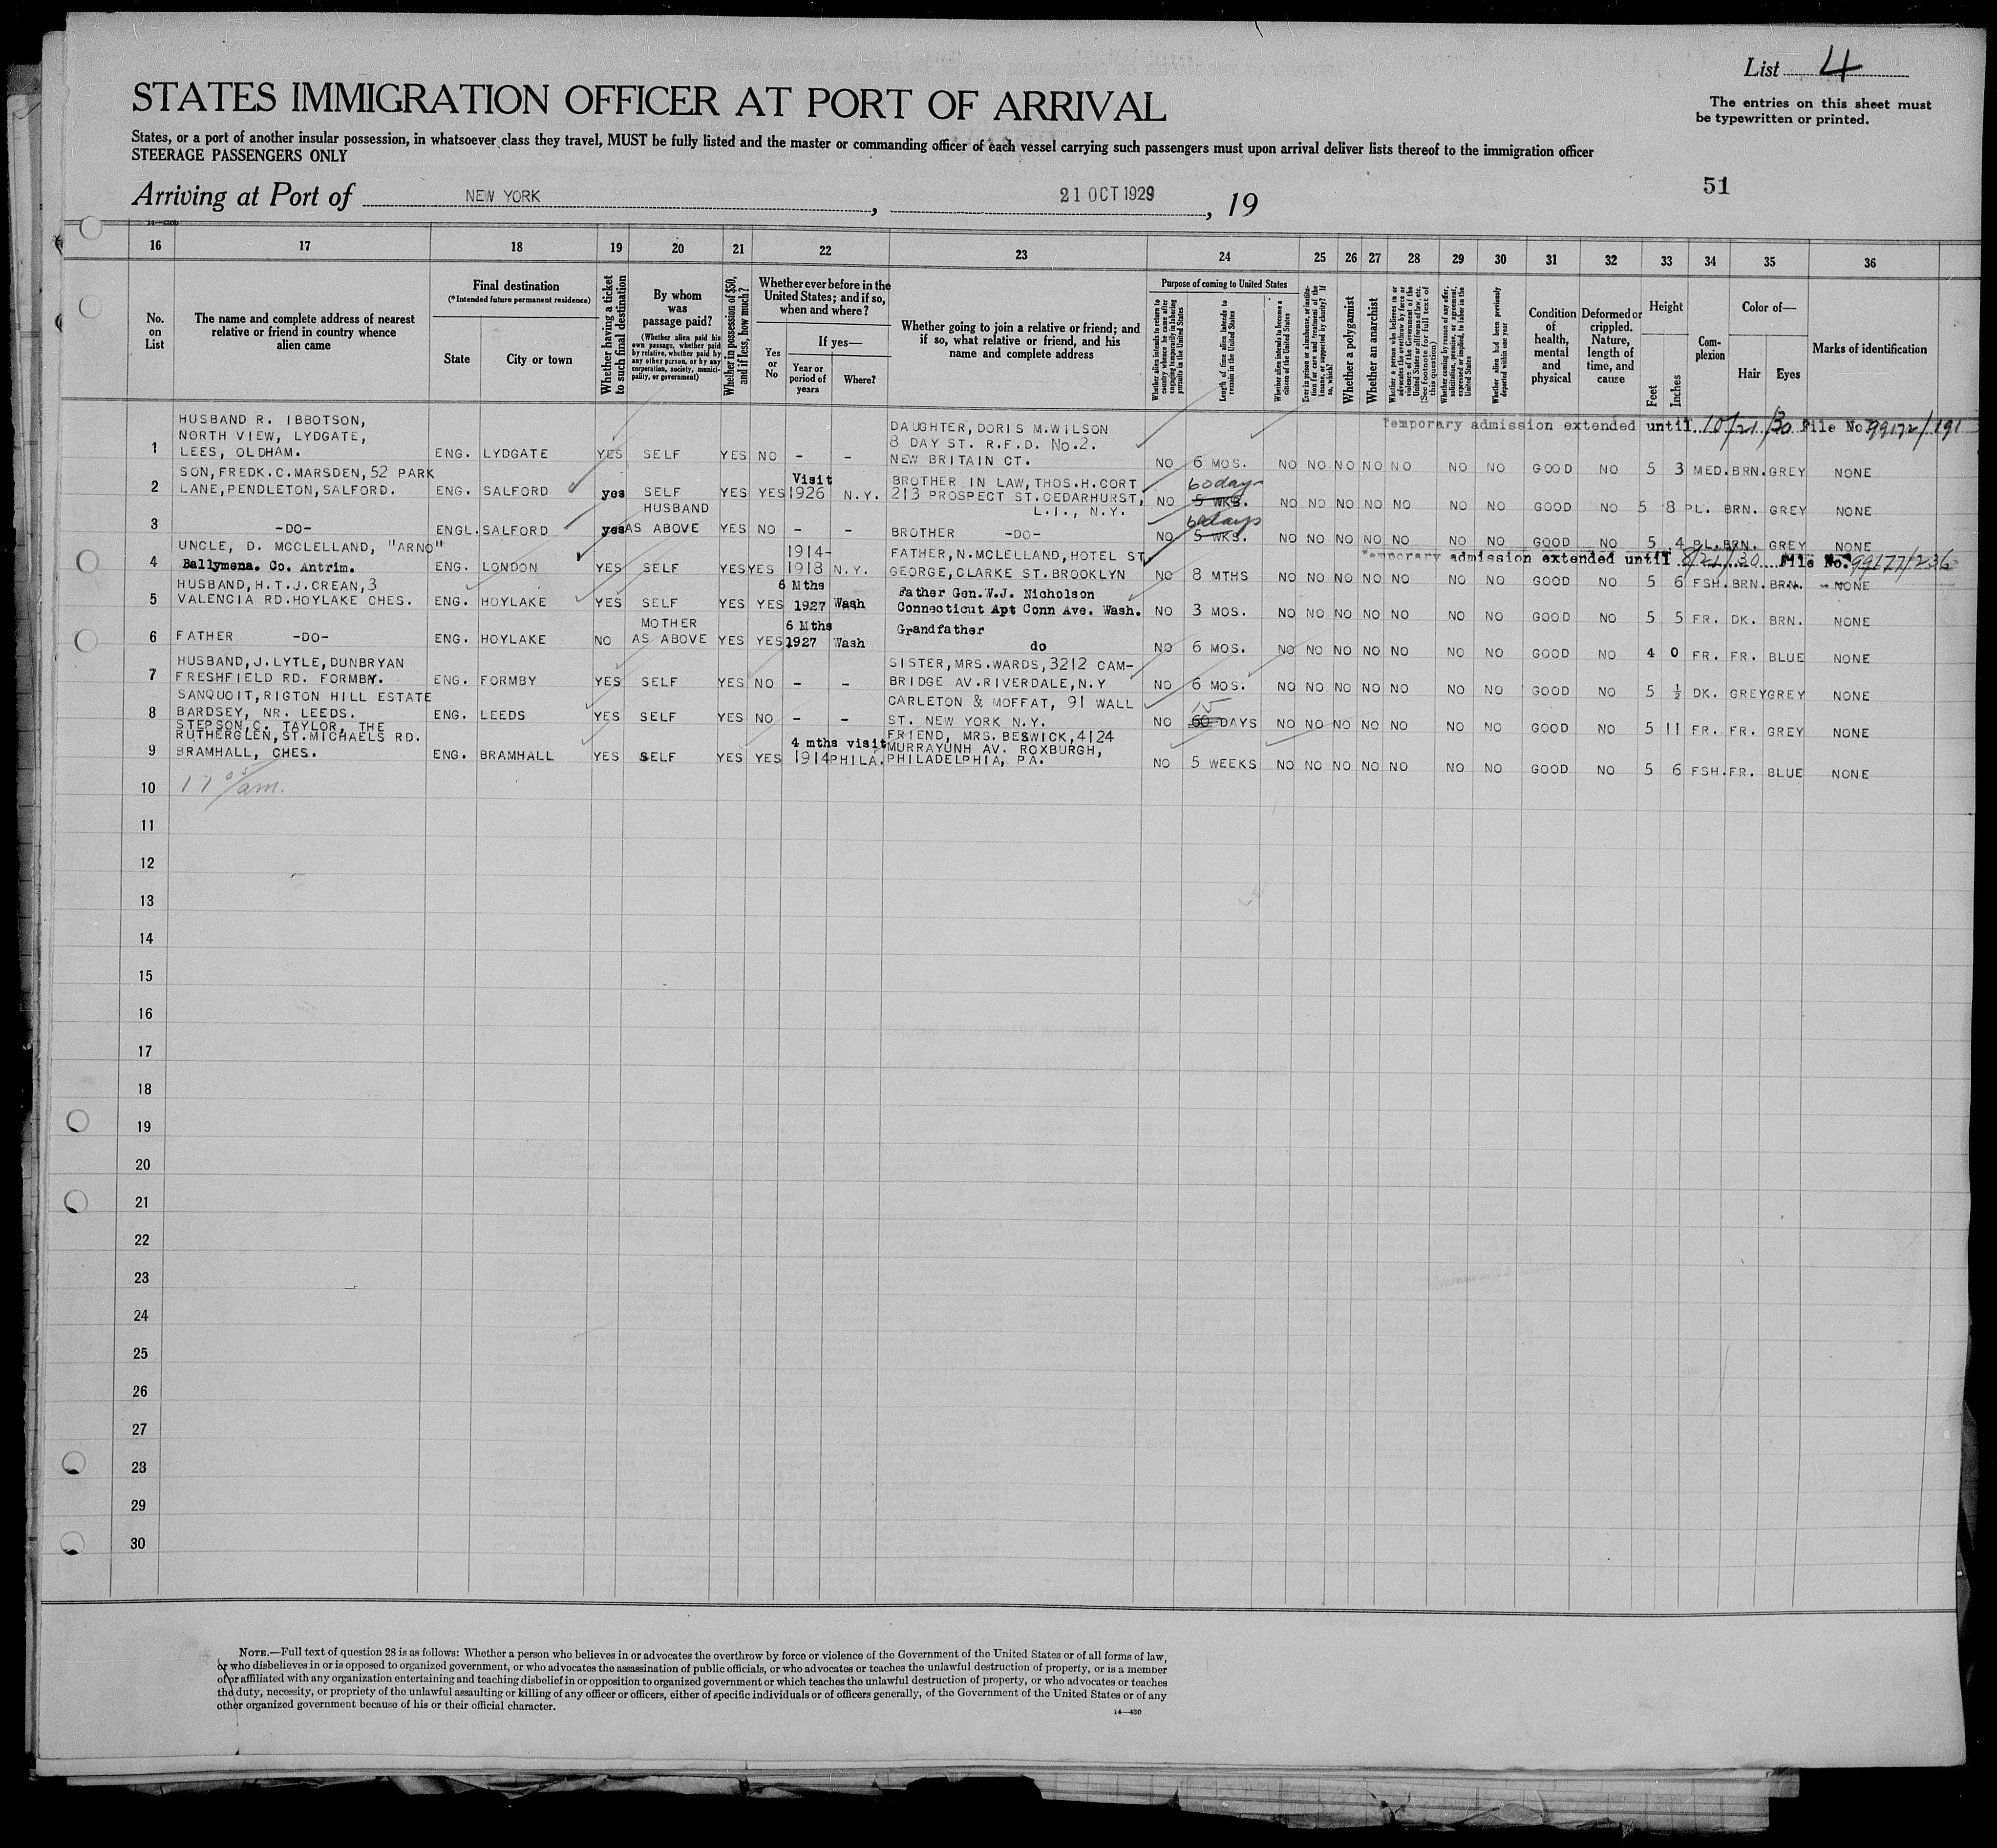 List 4
The entries on this sheet must
be typewritten or printed.
STATES IMMIGRATION OFFICER AT PORT OF ARRIVAL
States, or a port of another insular possession, in whatsoever class they travel, MUST be fully listed and the master or commanding officer of each vessel carrying such passengers must upon arrival deliver lists thereof to the immigration officer
STEERAGE PASSENGERS ONLY
51
Arriving at Port of NEW YORK, 21 OCT 1929, 19
16 17 18 19 20 21 22 23 24 25 26 27 28 29 30 31 32 33 34 35 36
No. on List
The name and complete address of nearest relative or friend in country whence alien came
Final destination
(*Intended future permanent residence)
State
City or town
Whether having a ticket to such final destination
By whom was passage paid?
(Whether alien paid his own passage, whether paid by relative, whether paid by any other person, or by any corporation, society, municipality, or government)
Whether in possession of $50, and if less, how much?
Whether ever before in the United States; and if so, when and where?
Yes or No
If yes—
Year or period of years
Where?
Whether going to join a relative or friend; and if so, what relative or friend, and his name and complete address
Purpose of coming to United States
Whether alien intends to return to country whence he came after engaging temporarily in laboring pursuits in the United States
Length of time alien intends to remain in the United States
Whether alien intends to become a citizen of the United States
Ever in prison or almshouse, or institution for care and treatment of the insane, or supported by charity? If so, which?
Whether a polygamist
Whether an anarchist
Whether a person who believes in or advocates the overthrow by force or violence of the Government of the United States or all forms of law, etc. (See footnote for full text of this question)
Whether coming by reason of any offer, solicitation, promise, or agreement, expressed or implied, to labor in the United States
Whether alien had been previously deported within one year
Condition of health, mental and physical
Deformed or crippled. Nature, length of time, and cause
Height
Feet
Inches
Complexion
Color of—
Hair
Eyes
Marks of identification
Temporary admission extended until 10/21/30 File No 99172/191
1 HUSBAND R. IBBOTSON, NORTH VIEW, LYDGATE, LEES, OLDHAM. ENG. LYDGATE YES SELF YES NO - - DAUGHTER, DORIS M.WILSON 8 DAY ST. R.F.D. No.2. NEW BRITAIN CT. NO 6 MOS. NO NO NO NO NO NO NO GOOD NO 5 3 MED. BRN. GREY NONE
2 SON, FREDK.C.MARSDEN, 52 PARK LANE, PENDLETON, SALFORD. ENG. SALFORD yes SELF YES YES Visit 1926 N.Y. BROTHER IN LAW, THOS.H.CORT 213 PROSPECT ST. CEDARHURST, L.I., N.Y. NO 5 WKS. 60 days NO NO NO NO NO NO NO GOOD NO 5 8 PL. BRN. GREY NONE
3 -DO- ENGL. SALFORD yes HUSBAND AS ABOVE YES NO - - BROTHER -DO- NO 5 WKS. 60 days NO NO NO NO NO NO NO GOOD NO 5 4 PL. BRN. GREY NONE
Temporary admission extended until 8/21/30 File No. 99177/236
4 UNCLE, D. MCCLELLAND, "ARNO" Ballymena. Co. Antrim. ENG. LONDON YES SELF YES YES 1914-1918 N.Y. FATHER, N.MCLELLAND, HOTEL ST. GEORGE, CLARKE ST. BROOKLYN NO 8 MTHS NO NO NO NO NO NO NO GOOD NO 5 6 FSH. BRN. BRN. NONE
5 HUSBAND, H.T.J.CREAN, 3 VALENCIA RD. HOYLAKE CHES. ENG. HOYLAKE YES SELF YES YES 6 Mths 1927 Wash Father Gen. W.J. Nicholson Connecticut Apt Conn Ave. Wash. NO 3 MOS. NO NO NO NO NO NO NO GOOD NO 5 5 FR. DK. BRN. NONE
6 FATHER -DO- ENG. HOYLAKE NO MOTHER AS ABOVE YES YES 6 Mths 1927 Wash Grandfather do NO 6 MOS. NO NO NO NO NO NO NO GOOD NO 4 0 FR. FR. BLUE NONE
7 HUSBAND, J.LYTLE, DUNBRYAN FRESHFIELD RD. FORMBY. ENG. FORMBY YES SELF YES NO - - SISTER, MRS.WARDS, 3212 CAMBRIDGE AV. RIVERDALE, N.Y NO 6 MOS. NO NO NO NO NO NO NO GOOD NO 5 ½ DK. GREY GREY NONE
8 SANQUOIT, RIGTON HILL ESTATE BARDSEY, NR. LEEDS. ENG. LEEDS YES SELF YES NO - - CARLETON & MOFFAT, 91 WALL ST. NEW YORK N.Y. NO 60 15 DAYS NO NO NO NO NO NO NO GOOD NO 5 11 FR. FR. GREY NONE
9 STEPSON, C. TAYLOR, THE RUTHERGLEN, ST. MICHAELS RD. BRAMHALL, CHES. ENG. BRAMHALL YES SELF YES YES 4 mths visit 1914 PHILA. FRIEND, MRS. BESWICK, 4124 MURRAYUNH AV. ROXBURGH, PHILADELPHIA, PA. NO 5 WEEKS NO NO NO NO NO NO NO GOOD NO 5 6 FSH. FR. BLUE NONE
10
11
12
13
14
15
16
17
18
19
20
21
22
23
24
25
26
27
28
29
30
NOTE.—Full text of question 28 is as follows: Whether a person who believes in or advocates the overthrow by force or violence of the Government of the United States or of all forms of law,
or who disbelieves in or is opposed to organized government, or who advocates the assassination of public officials, or who advocates or teaches the unlawful destruction of property, or is a member
of or affiliated with any organization entertaining and teaching disbelief in or opposition to organized government or which teaches the unlawful destruction of property, or who advocates or teaches
the duty, necessity, or propriety of the unlawful assaulting or killing of any officer or officers, either of specific individuals or of officers generally, of the Government of the United States or of any
other organized government because of his or their official character.
14—430